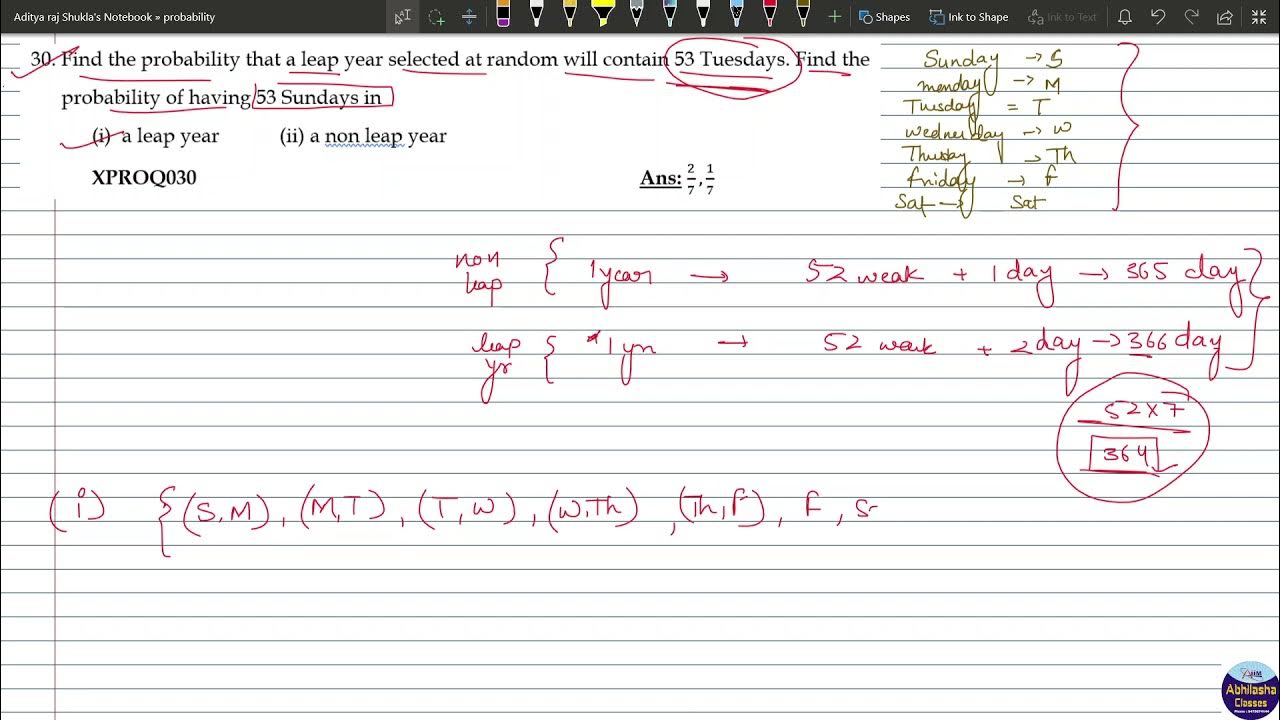 Aditya raj Shukla's Notebook » probability
Shapes Ink to Shape Ink to Text
30. Find the probability that a leap year selected at random will contain 53 Tuesdays. Find the
probability of having 53 Sundays in
(i) a leap year (ii) a non leap year
XPROQ030 Ans: 2/7, 1/7
Sunday → S
menday → M
Tuesday = T
wednerday → W
Thusday → Th
friday → f
Sat → Sat
non leap { 1 year → 52 weak + 1 day → 365 day }
leap yr { 1 yr → 52 weak + 2 day → 366 day
52 x 7
364
(i) { (S, M), (M, T), (T, W), (W, Th), (Th, F), F, S
AHM
Abhilasha
Classes